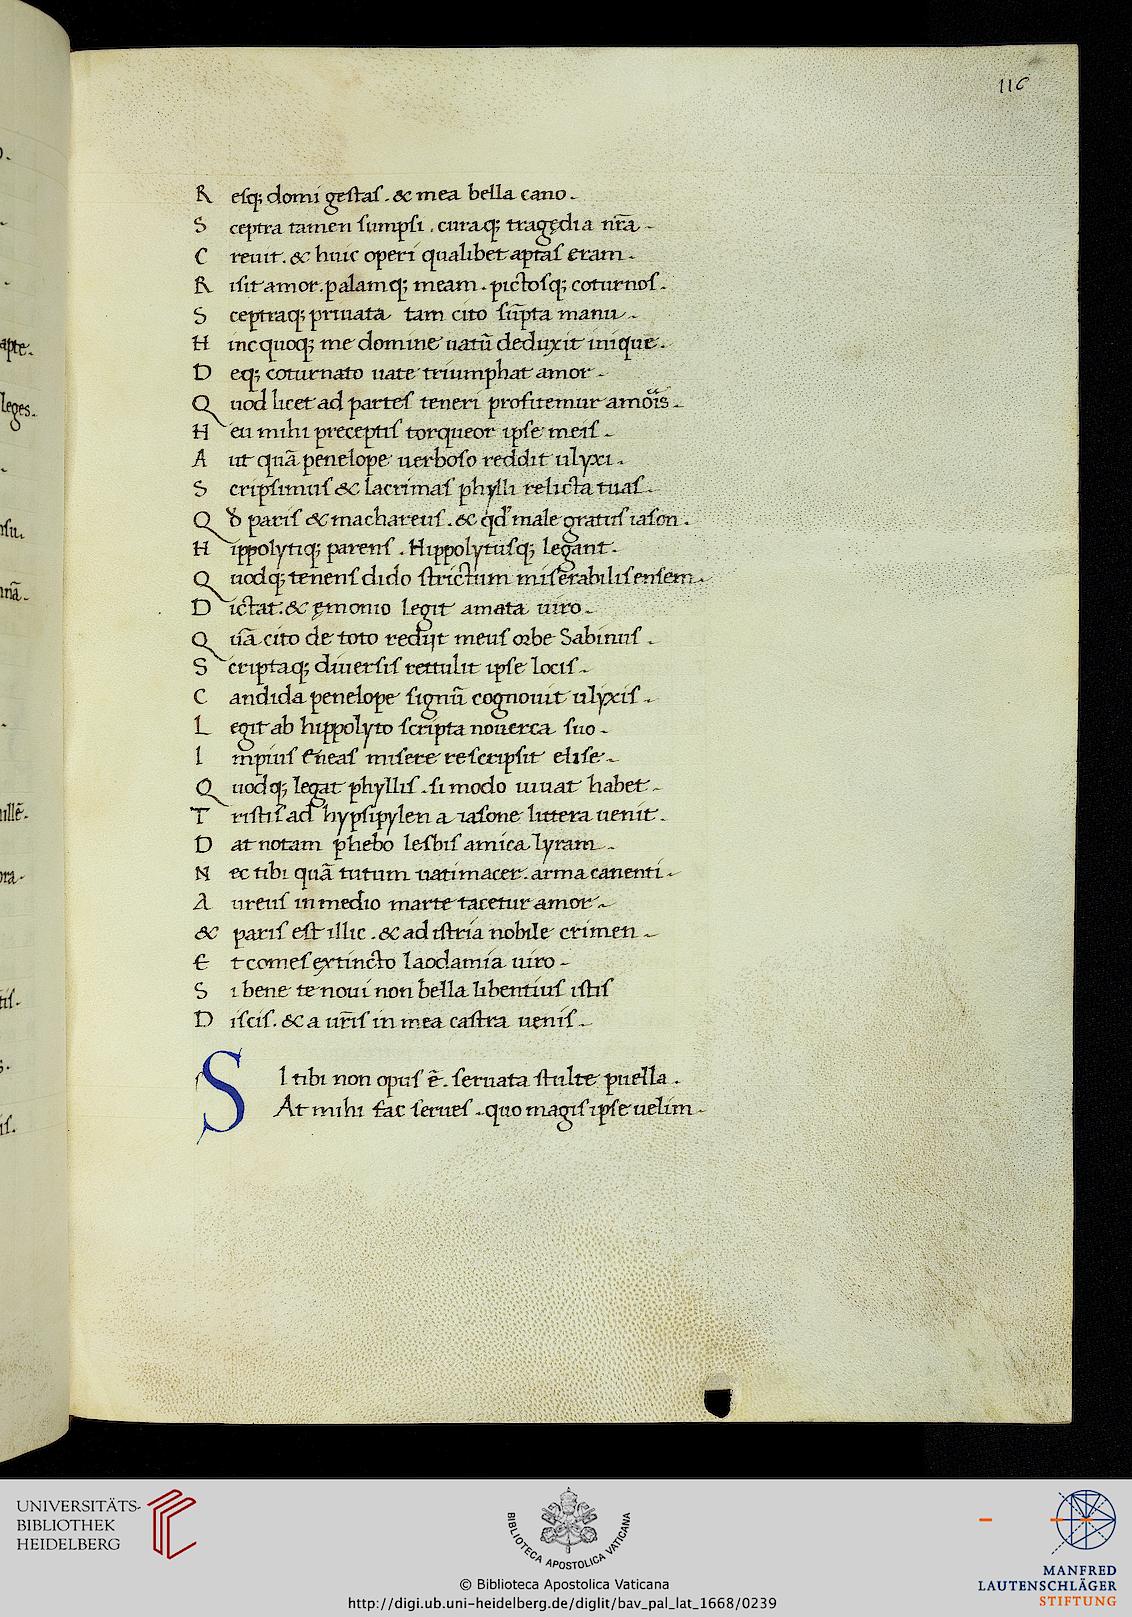 116
R esq; domi gestas . & mea bella cano .
S ceptra tamen sumpsi . curaq; tragędia nr̃a .
C reuit . & huic operi qualibet aptas eram .
R isit amor . palamq; meam . pictosq; coturnos .
S ceptraq; priuata tam cito sūpta manu .
H inc quoq; me domine uatū deduxit inique .
D eq; coturnato uate triumphat amor .
Q uod licet ad partes teneri profitemur amois .
H eu mihi preceptis torqueor ipse meis .
A ut quā penelope uerboso reddit ulyxi .
S cripsimus & lacrimas phylli relicta tuas .
Q đ paris & machareus . & qđ male gratus iason .
H ippolytiq; parens . Hippolytusq; legant .
Q uodq; tenens dido strictum miserabilis ensem .
D ictat . & ęmonio legit amata uiro .
Q uā cito de toto redijt meus orbe Sabinus .
S criptaq; diuersis rettulit ipse locis .
C andida penelope signū cognouit ulyxis .
L egit ab hippolyto scripta nouerca suo .
I mpius eneas misere rescripsit elise .
Q uodq; legat phyllis . si modo uiuat habet .
T ristis ad hypsipylen a iasone littera uenit .
D at notam phebo lesbis amica lyram .
N ec tibi quā tutum uatimacer . arma canenti .
A ureus in medio marte tacetur amor .
& paris est illic . & ad istria nobile crimen .
E t comes extincto laodamia uiro .
S i bene te noui non bella libentius istis
D iscis . & a ur̃is in mea castra uenis .
S I tibi non opus ē . seruata stulte puella .
At mihi fac serues . quo magis ipse uelim .
apte .
leges .
UNIVERSITÄTS-
BIBLIOTHEK
HEIDELBERG
BIBLIOTECA APOSTOLICA VATICANA
MANFRED
LAUTENSCHLÄGER
STIFTUNG
© Biblioteca Apostolica Vaticana
http://digi.ub.uni-heidelberg.de/diglit/bav_pal_lat_1668/0239